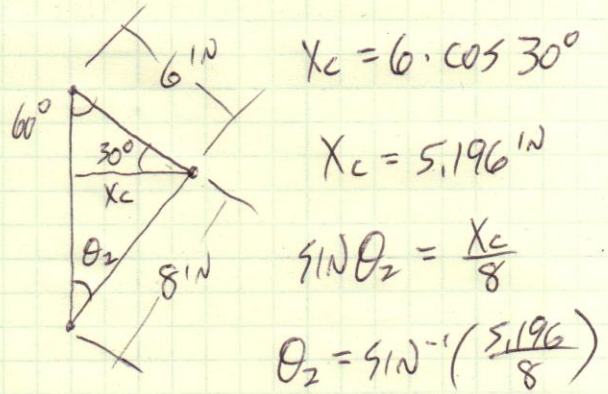 60°
6 IN
30°
Xc
θ2
8 IN
Xc = 6 · COS 30°
Xc = 5.196 IN
SIN θ2 = Xc/8
θ2 = SIN⁻¹ (5.196/8)